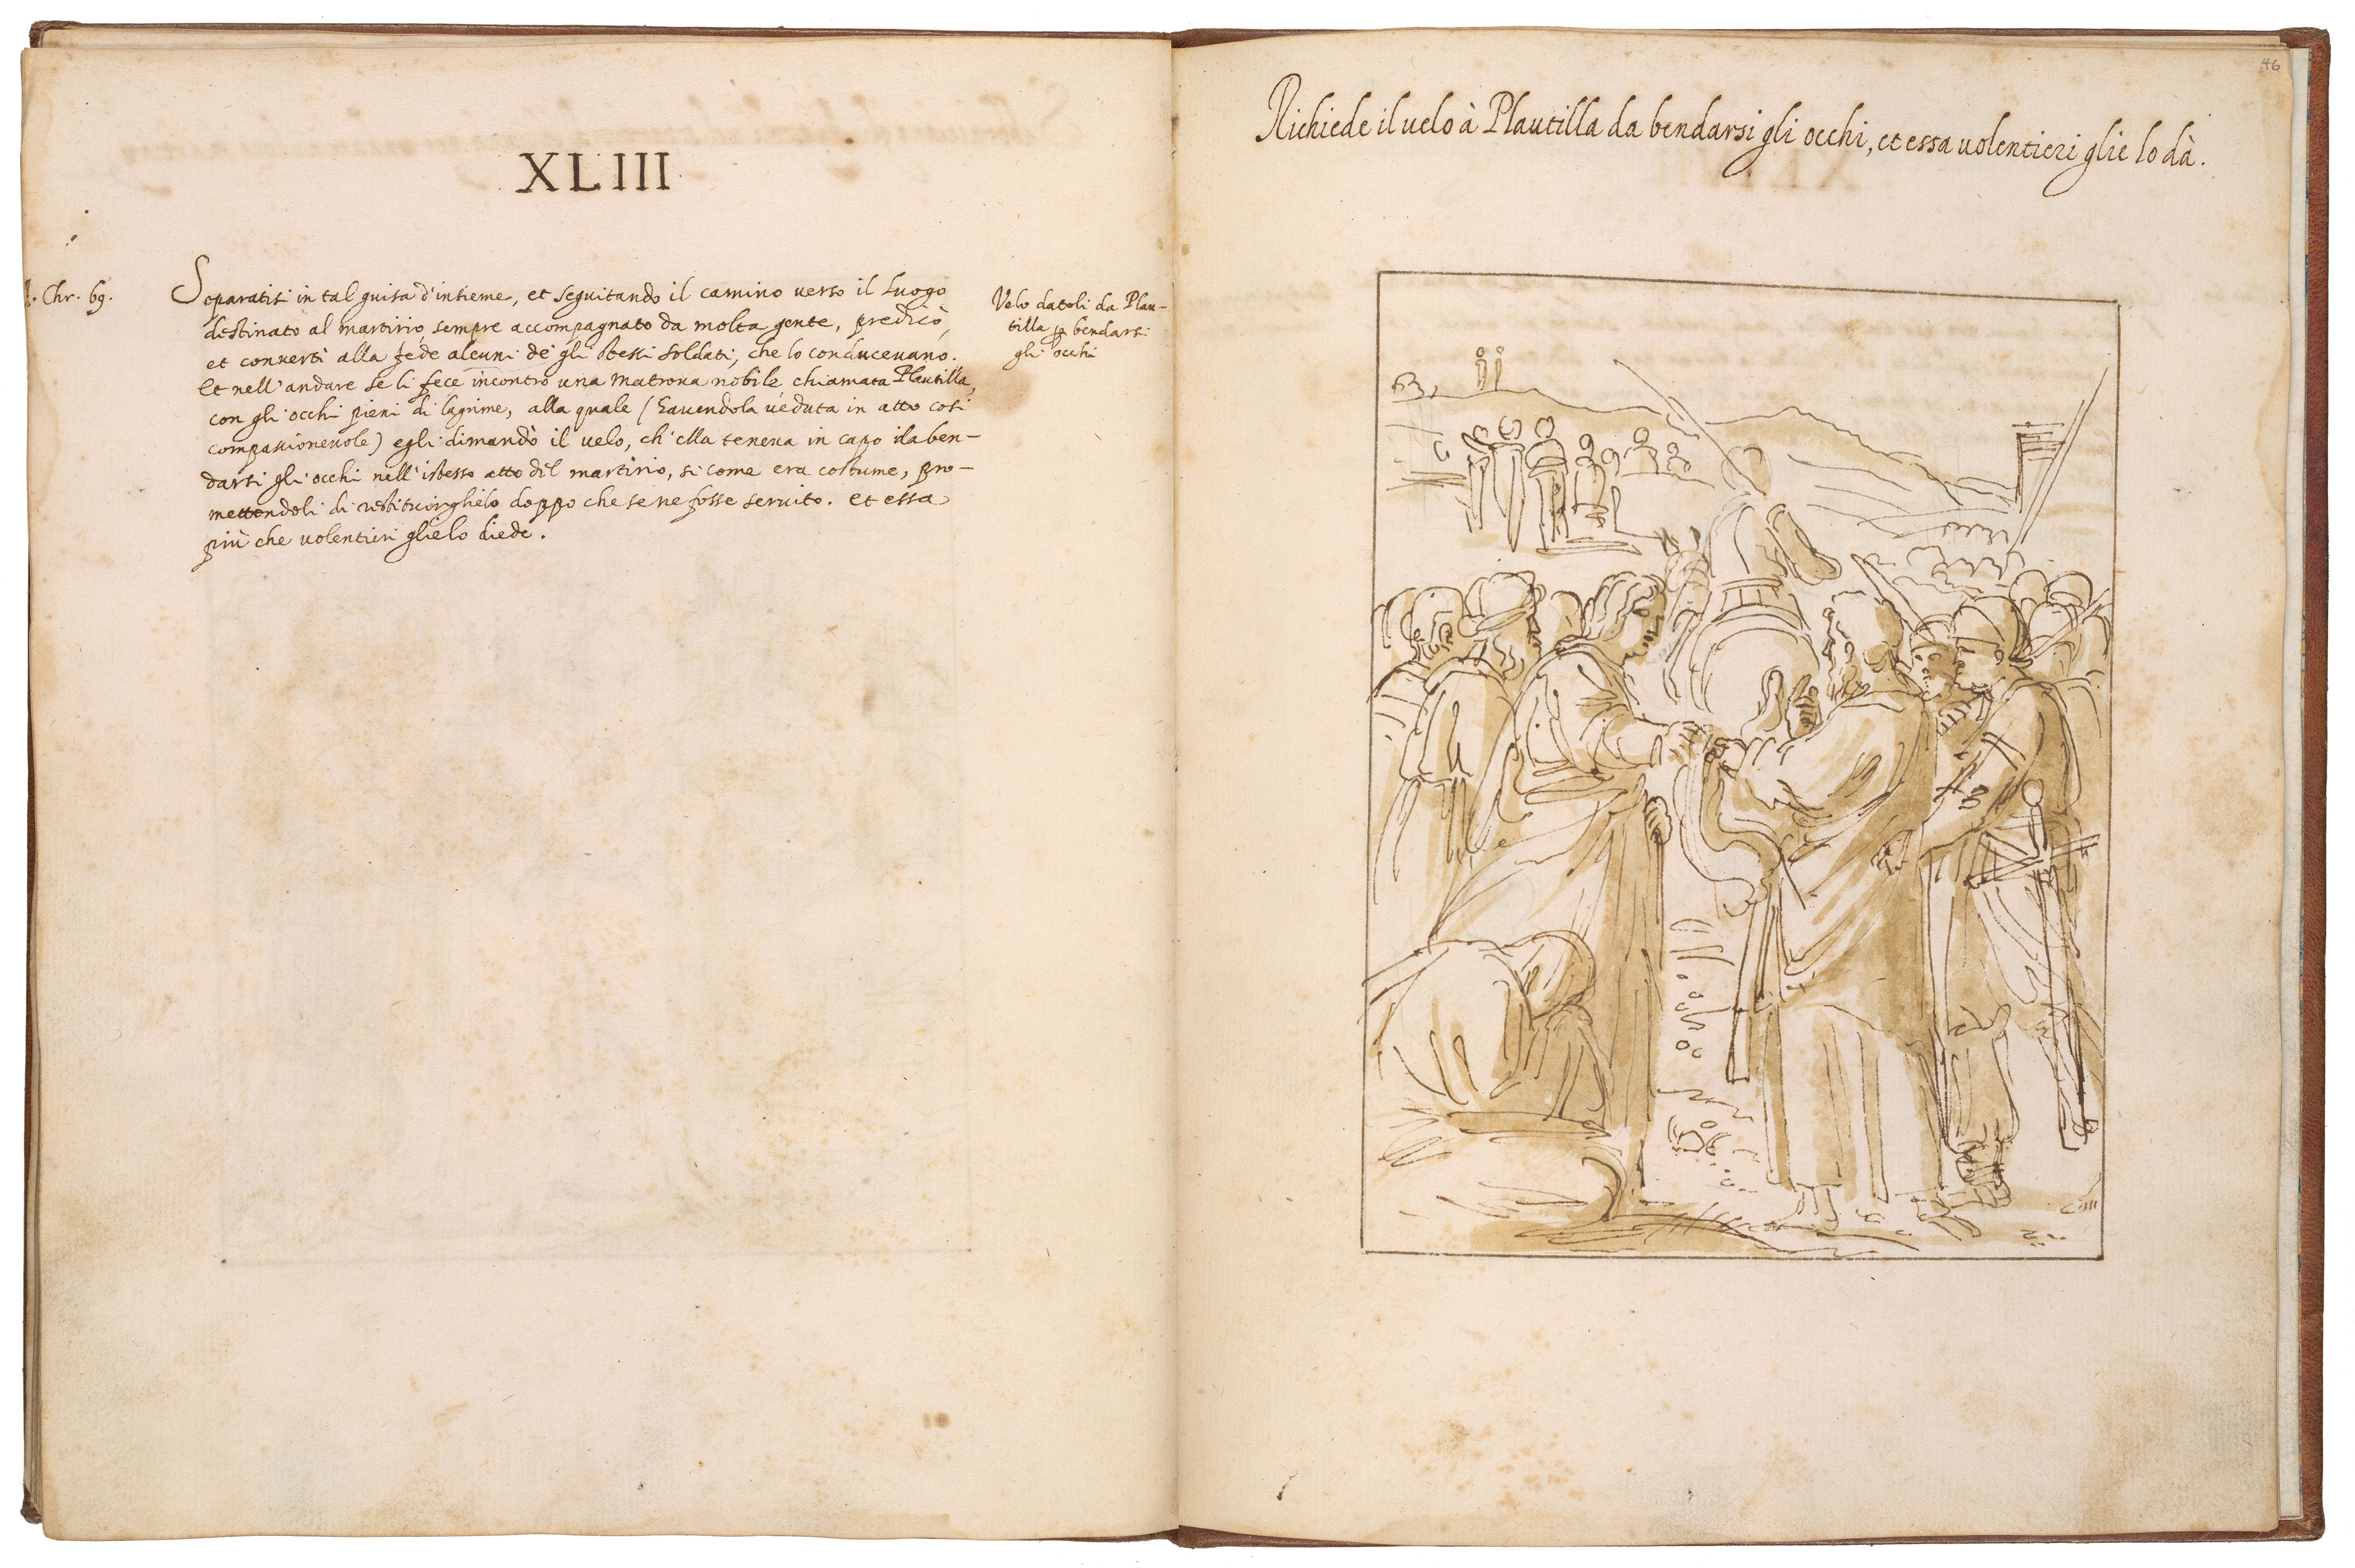 XLIII
Chr. 69.
Separatisi in tal guisa d'insieme, et seguitando il camino verso il luogo
destinato al martirio, sempre accompagnato da molta gente, predicò,
et conuertì alla fede alcuni de gli stessi soldati, che lo conduceuano.
Et nell'andare se li fece incontro una matrona nobile chiamata Plautilla,
con gli occhi pieni di lagrime, alla quale (hauendola ueduta in atto così
compassioneuole) egli dimandò il uelo, ch'ella teneua in capo da ben-
darsi gli occhi nell'istesso atto del martirio, si come era costume, pro-
mettendoli di restituirghelo doppo che se ne fosse seruito. et essa
più che uolentieri glielo diede.
Velo datoli da Plau-
tilla p bendarsi
gli occhi
46
Richiede il uelo à Plautilla da bendarsi gli occhi, et essa uolentieri glie lo dà.